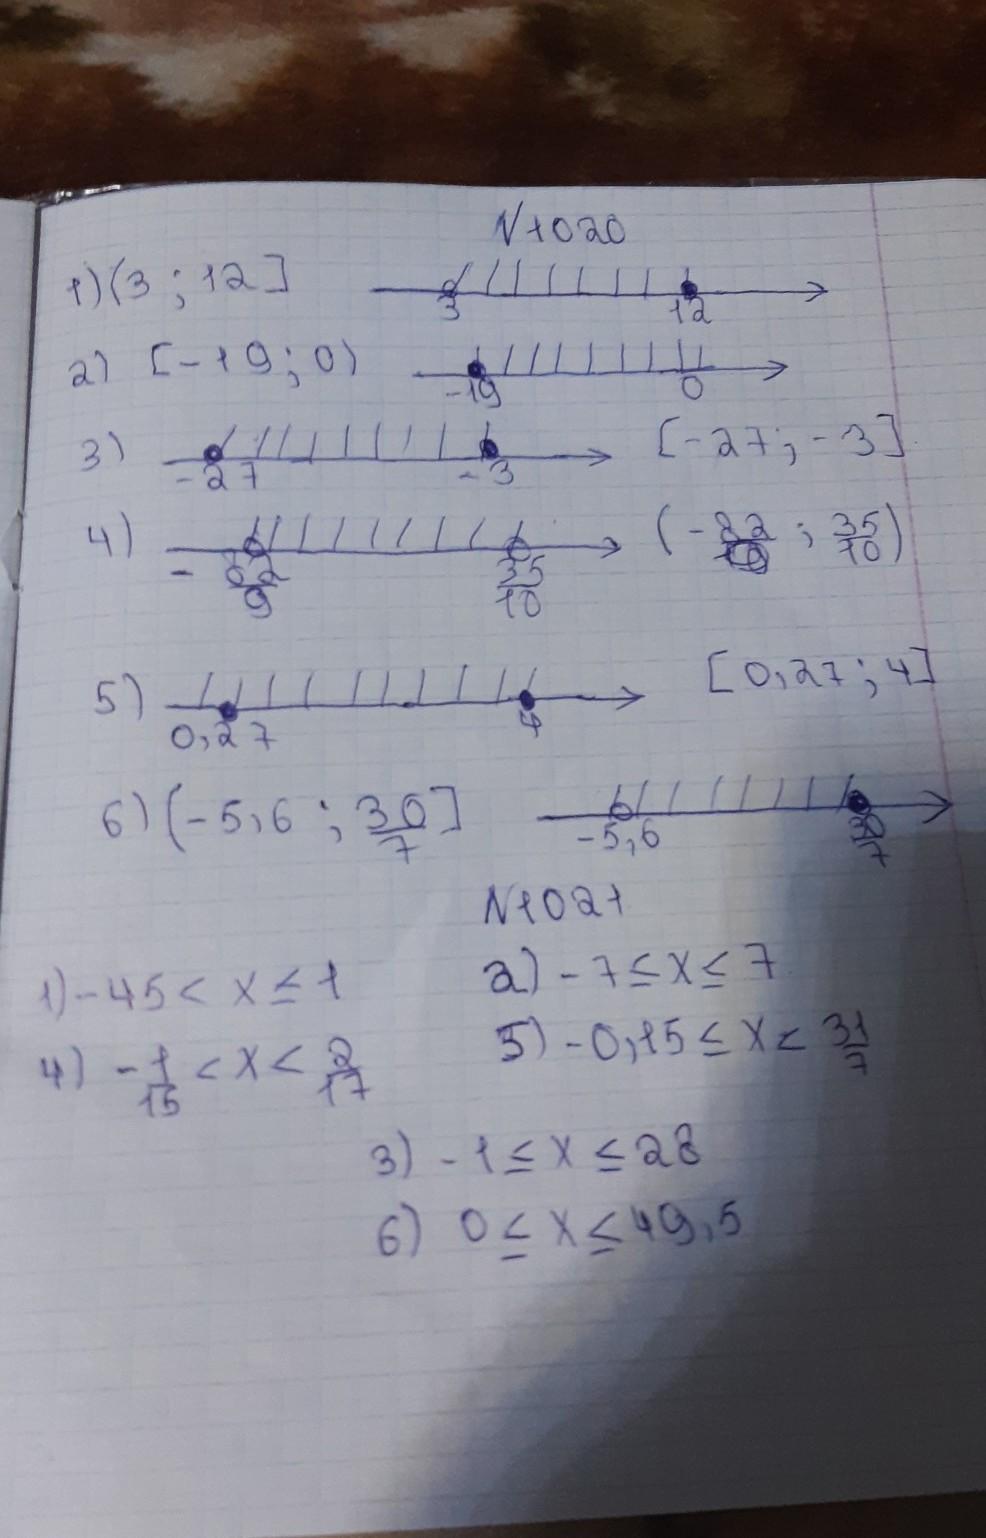 N1020
1) (3 ; 12] 3 12
2) [-19 ; 0) -19 0
3) -27 -3 [-27 ; -3]
4) (- ; 35/10) 35/10
5) 0,27 4 [0,27 ; 4]
6) (-5,6 ; 30/7] -5,6
N1021
1) -45 < x ≤ 1 2) -7 ≤ x ≤ 7
4) -1/15 < x < 2/17 5) -0,15 ≤ x < 31/7
3) -1 ≤ x ≤ 28
6) 0 ≤ x ≤ 49,5